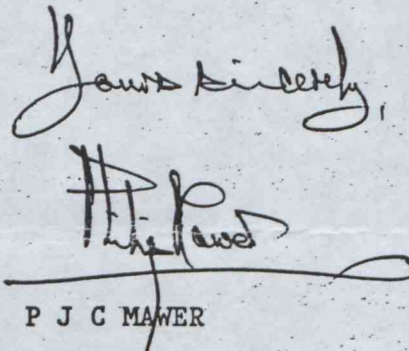 Yours sincerely,
Philip Mawer
P J C MAWER